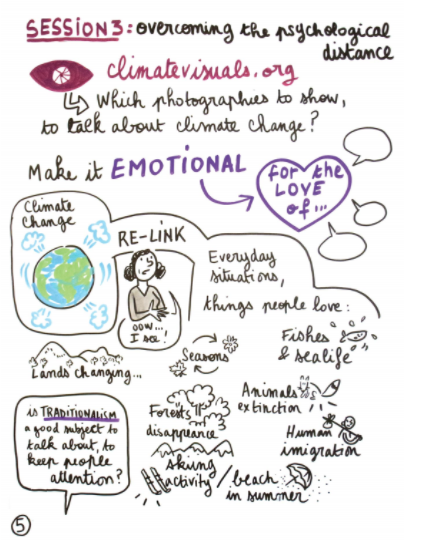 SESSION 3: overcoming the psychological
distance
climatevisuals.org
Which photographies to show,
to talk about climate change?
Make it EMOTIONAL
for the
LOVE
of...
Climate
Change
RE-LINK
OOW...
I see!
Everyday
situations,
things people love:
Fishes
& sealife
Seasons
Lands changing...
Animals
extinction
Forests
disappearance
Human
imigration
skiing
activity
beach
in summer
is TRADITIONALISM
a good subject to
talk about, to
keep people
attention?
5